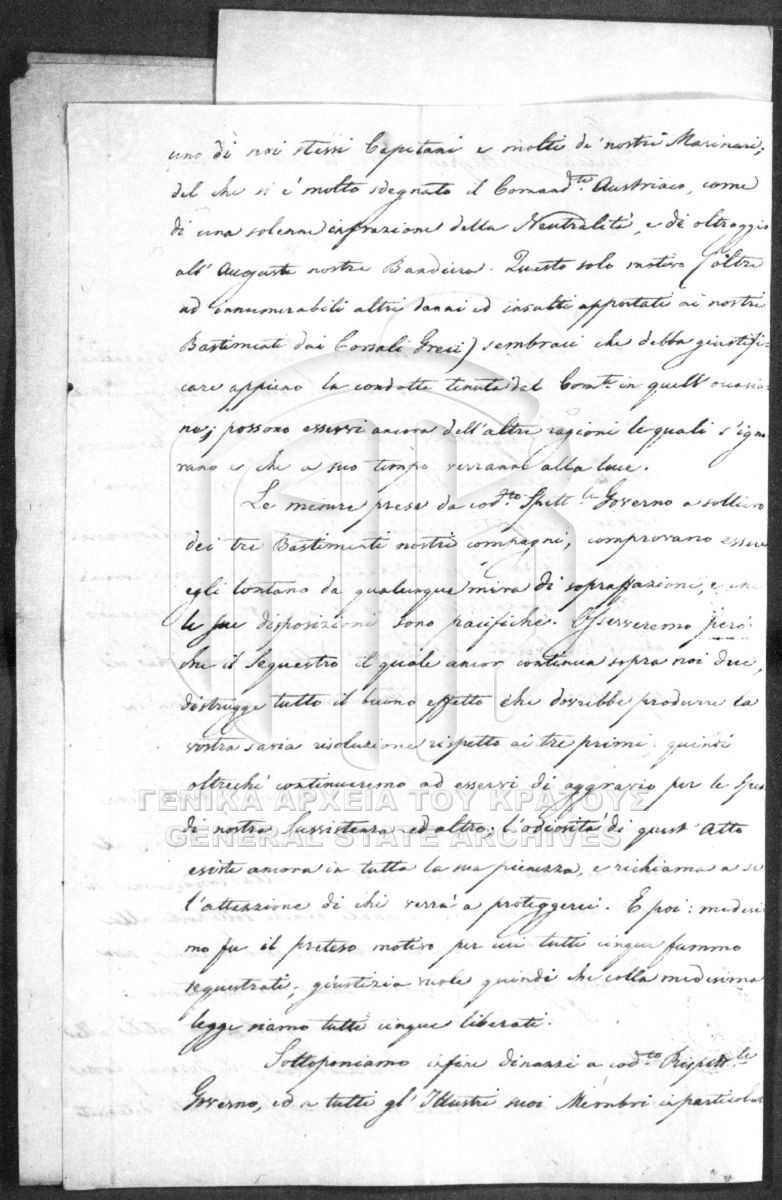 uno di noi stessi Capitani e molti de' nostri Marinari;
del che si è molto sdegnato il Comand.te Austriaco, come
di una solenne infrazione della Neutralità, e di oltraggio
all' Augusta nostra Bandiera. Questo solo motivo (oltre
ad innumerabili altri danni ed insulti apportati ai nostri
Bastimenti dai Corsali Greci) sembraci che debba giustifi-
care appieno la condotta tenuta dal Com.te in quell' occasio-
ne; possono esservi ancora dell'altre ragioni le quali s'igno
rano e che a suo tempo verranno alla luce.
Le misure prese da cod.to Spett.le Governo a sollievo
dei tre Bastimenti nostri compagni, comprovano essere
egli lontano da qualunque mira di sopraffazioni, e che
le sue disposizioni sono pacifiche. Osserveremo però
che il sequestro il quale ancor continua sopra noi due,
distrugge tutto il buono effetto che dovrebbe produrre la
vostra savia risoluzione rispetto ai tre primi; quindi
oltrechè continueremo ad esservi di aggravio per le spese
di nostra Sussistenza ed altro; l'odiosità di quest' Atto
esiste ancora in tutta la sua pienezza, e richiama a se
l'attenzione di chi verrà a proteggerci. E poi: medesi-
mo fu il preteso motivo per cui tutti cinque fummo
sequestrati; giustizia vuole quindi che colla medesima
legge siamo tutti cinque liberati.
Sottoponiamo infine dinanzi a cod.to Rispett.le
Governo, ed a tutti gl' Illustri suoi Membri in particolar
ΓΕΝΙΚΑ ΑΡΧΕΙΑ ΤΟΥ ΚΡΑΤΟΥΣ
GENERAL STATE ARCHIVES